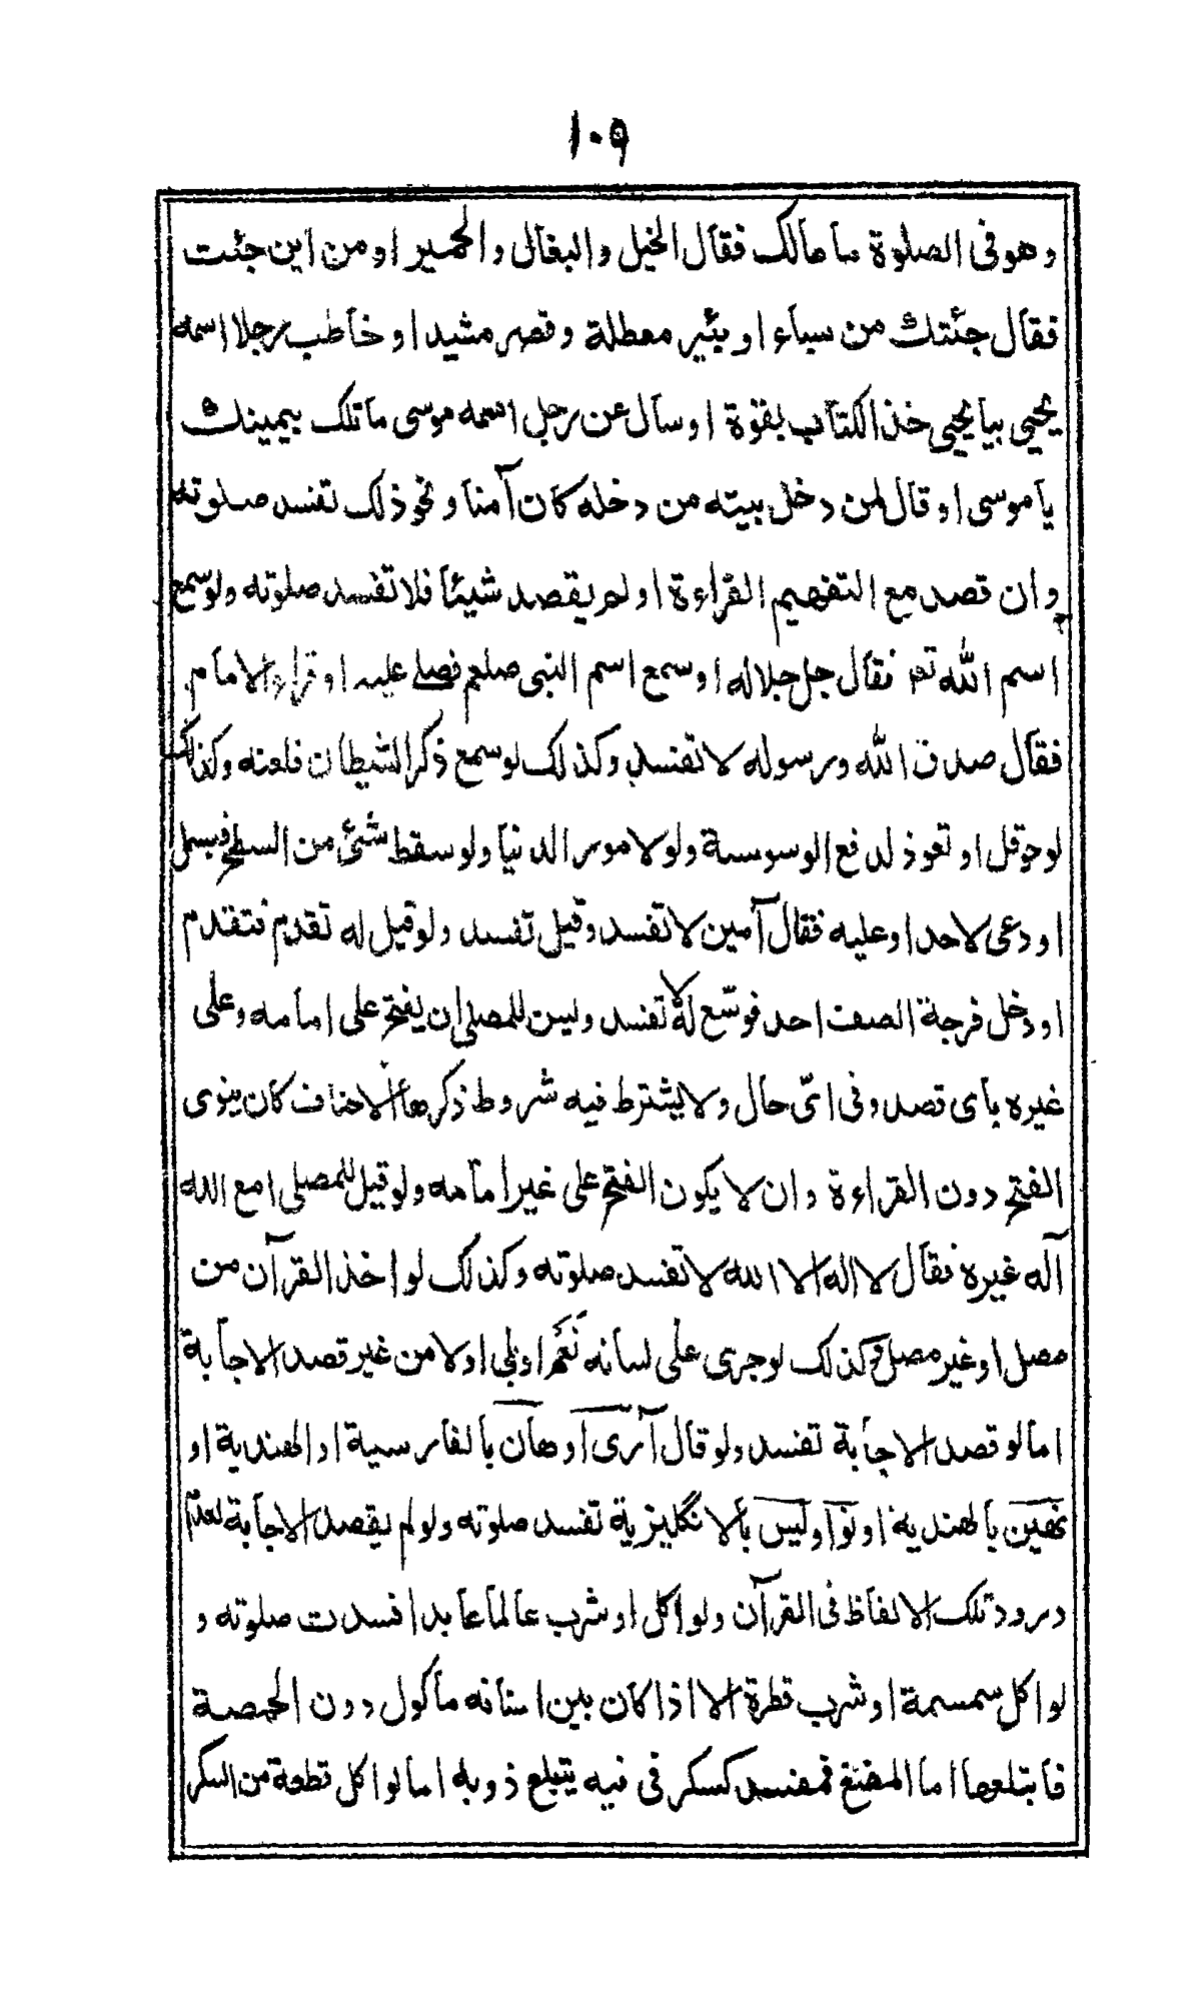 ١٠٩
وهو فى الصلوة ما مالك فقال الخيل والبغال والحمير او من اين جئت
فقال جئتك من سباء او بئير معطلة وقصر مشيد او خاطب رجلا اسمه
يحيى بيا يحيى خذ الكتاب بقوة او سأل عن رجل اسمه موسى ما تلك بيمينك
يا موسى او قال لمن دخل بيته من دخله كان آمنا ونحو ذلك تفسد صلوته
وان قصد مع التفهيم القراءة او لم يقصد شيئا فلا تفسد صلوته ولو سمع
اسم الله تعم فقال جل جلاله او سمع اسم النبى صلعم فصلے عليه او قراءة الامام
فقال صدق الله ورسوله لا تفسد وكذلك لو سمع ذكر الشيطان فلعنه وكذلك
لو حوقل او تعوذ لدفع الوسوسة ولو لامور الدنيا ولو سقط شئ من السطح فبسمل
او دعى لاحد او عليه فقال آمين لا تفسد وقيل تفسد ولو قيل له تقدم فتقدم
او دخل فرجة الصف احد فوسّع له لا تفسد وليس للمصلى ان يفتح على امامه وعلى
غيره باى قصد وفى اىّ حال ولا يشترط فيه شروط ذكرها الاحناف كان ينوى
الفتح دون القراءة وان لا يكون الفتح على غير امامه ولو قيل للمصلى امع الله
آله غيره فقال لا اله الا الله لا تفسد صلوته وكذلك لو اخذ القرآن من
مصل او غير مصل وكذلك لو جرى على لسانه نَعَم او بلى او لا من غير قصد الاجابة
اما لو قصد الاجابة تفسد ولو قال آرى او هان بالفارسية او الهندية او
نهين بالهندية او نو او ليس بالانگليزية تفسد صلوته ولو لم يقصد الاجابة لعدم
درود تلك الالفاظ فى القرآن ولو اكل او شرب عالما عابدا فسدت صلوته و
لو اكل سمسمة او شرب قطرة الا اذا كان بين اسنانه مأكول دون الحمصة
فابتلعها اما المضغ فمفسد كسكر فى فيه يبتلع ذوبه اما لو اكل قطعة من السكر